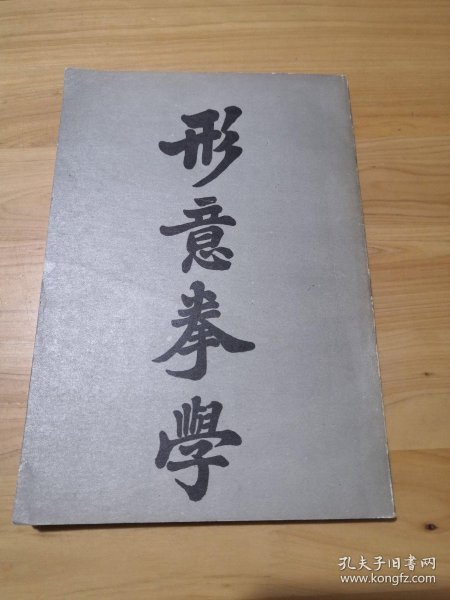 形意拳學
孔夫子旧书网
www.kongfz.com